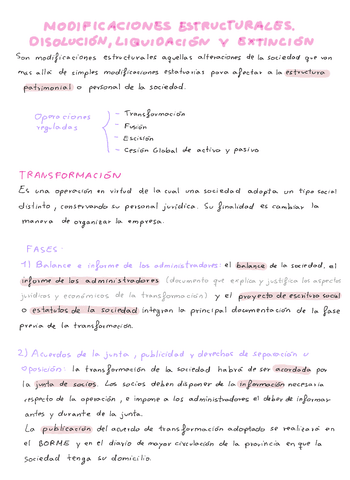 MODIFICACIONES ESTRUCTURALES.
DISOLUCIÓN, LIQUIDACIÓN Y EXTINCIÓN
Son modificaciones estructurales aquellas alteraciones de la sociedad que van
mas allá de simples modificaciones estatutarias para afectar a la estructura
patrimonial o personal de la sociedad.
Operaciones reguladas
- Transformación
- Fusión
- Escisión
- Cesión Global de activo y pasivo
TRANSFORMACIÓN
Es una operación en virtud de la cual una sociedad adopta un tipo social
distinto, conservando su personal jurídica. Su finalidad es cambiar la
manera de organizar la empresa.
FASES:
1) Balance e informe de los administradores: el balance de la sociedad, el
informe de los administradores (documento que explica y justifica los aspectos
jurídicos y económicos de la transformación) y el proyecto de escritura social
o estatutos de la sociedad integran la principal documentación de la fase
previa de la transformación.
2) Acuerdos de la junta, publicidad y derechos de separación u
oposición: la transformación de la sociedad habrá de ser acordada por
la junta de socios. Los socios deben disponer de la información necesaria
respecto de la operación, e impone a los administradores el deber de informar
antes y durante de la junta.
La publicación del acuerdo de transformación adoptado se realizará en
el BORME y en el diario de mayor circulación de la provincia en que la
sociedad tenga su domicilio.